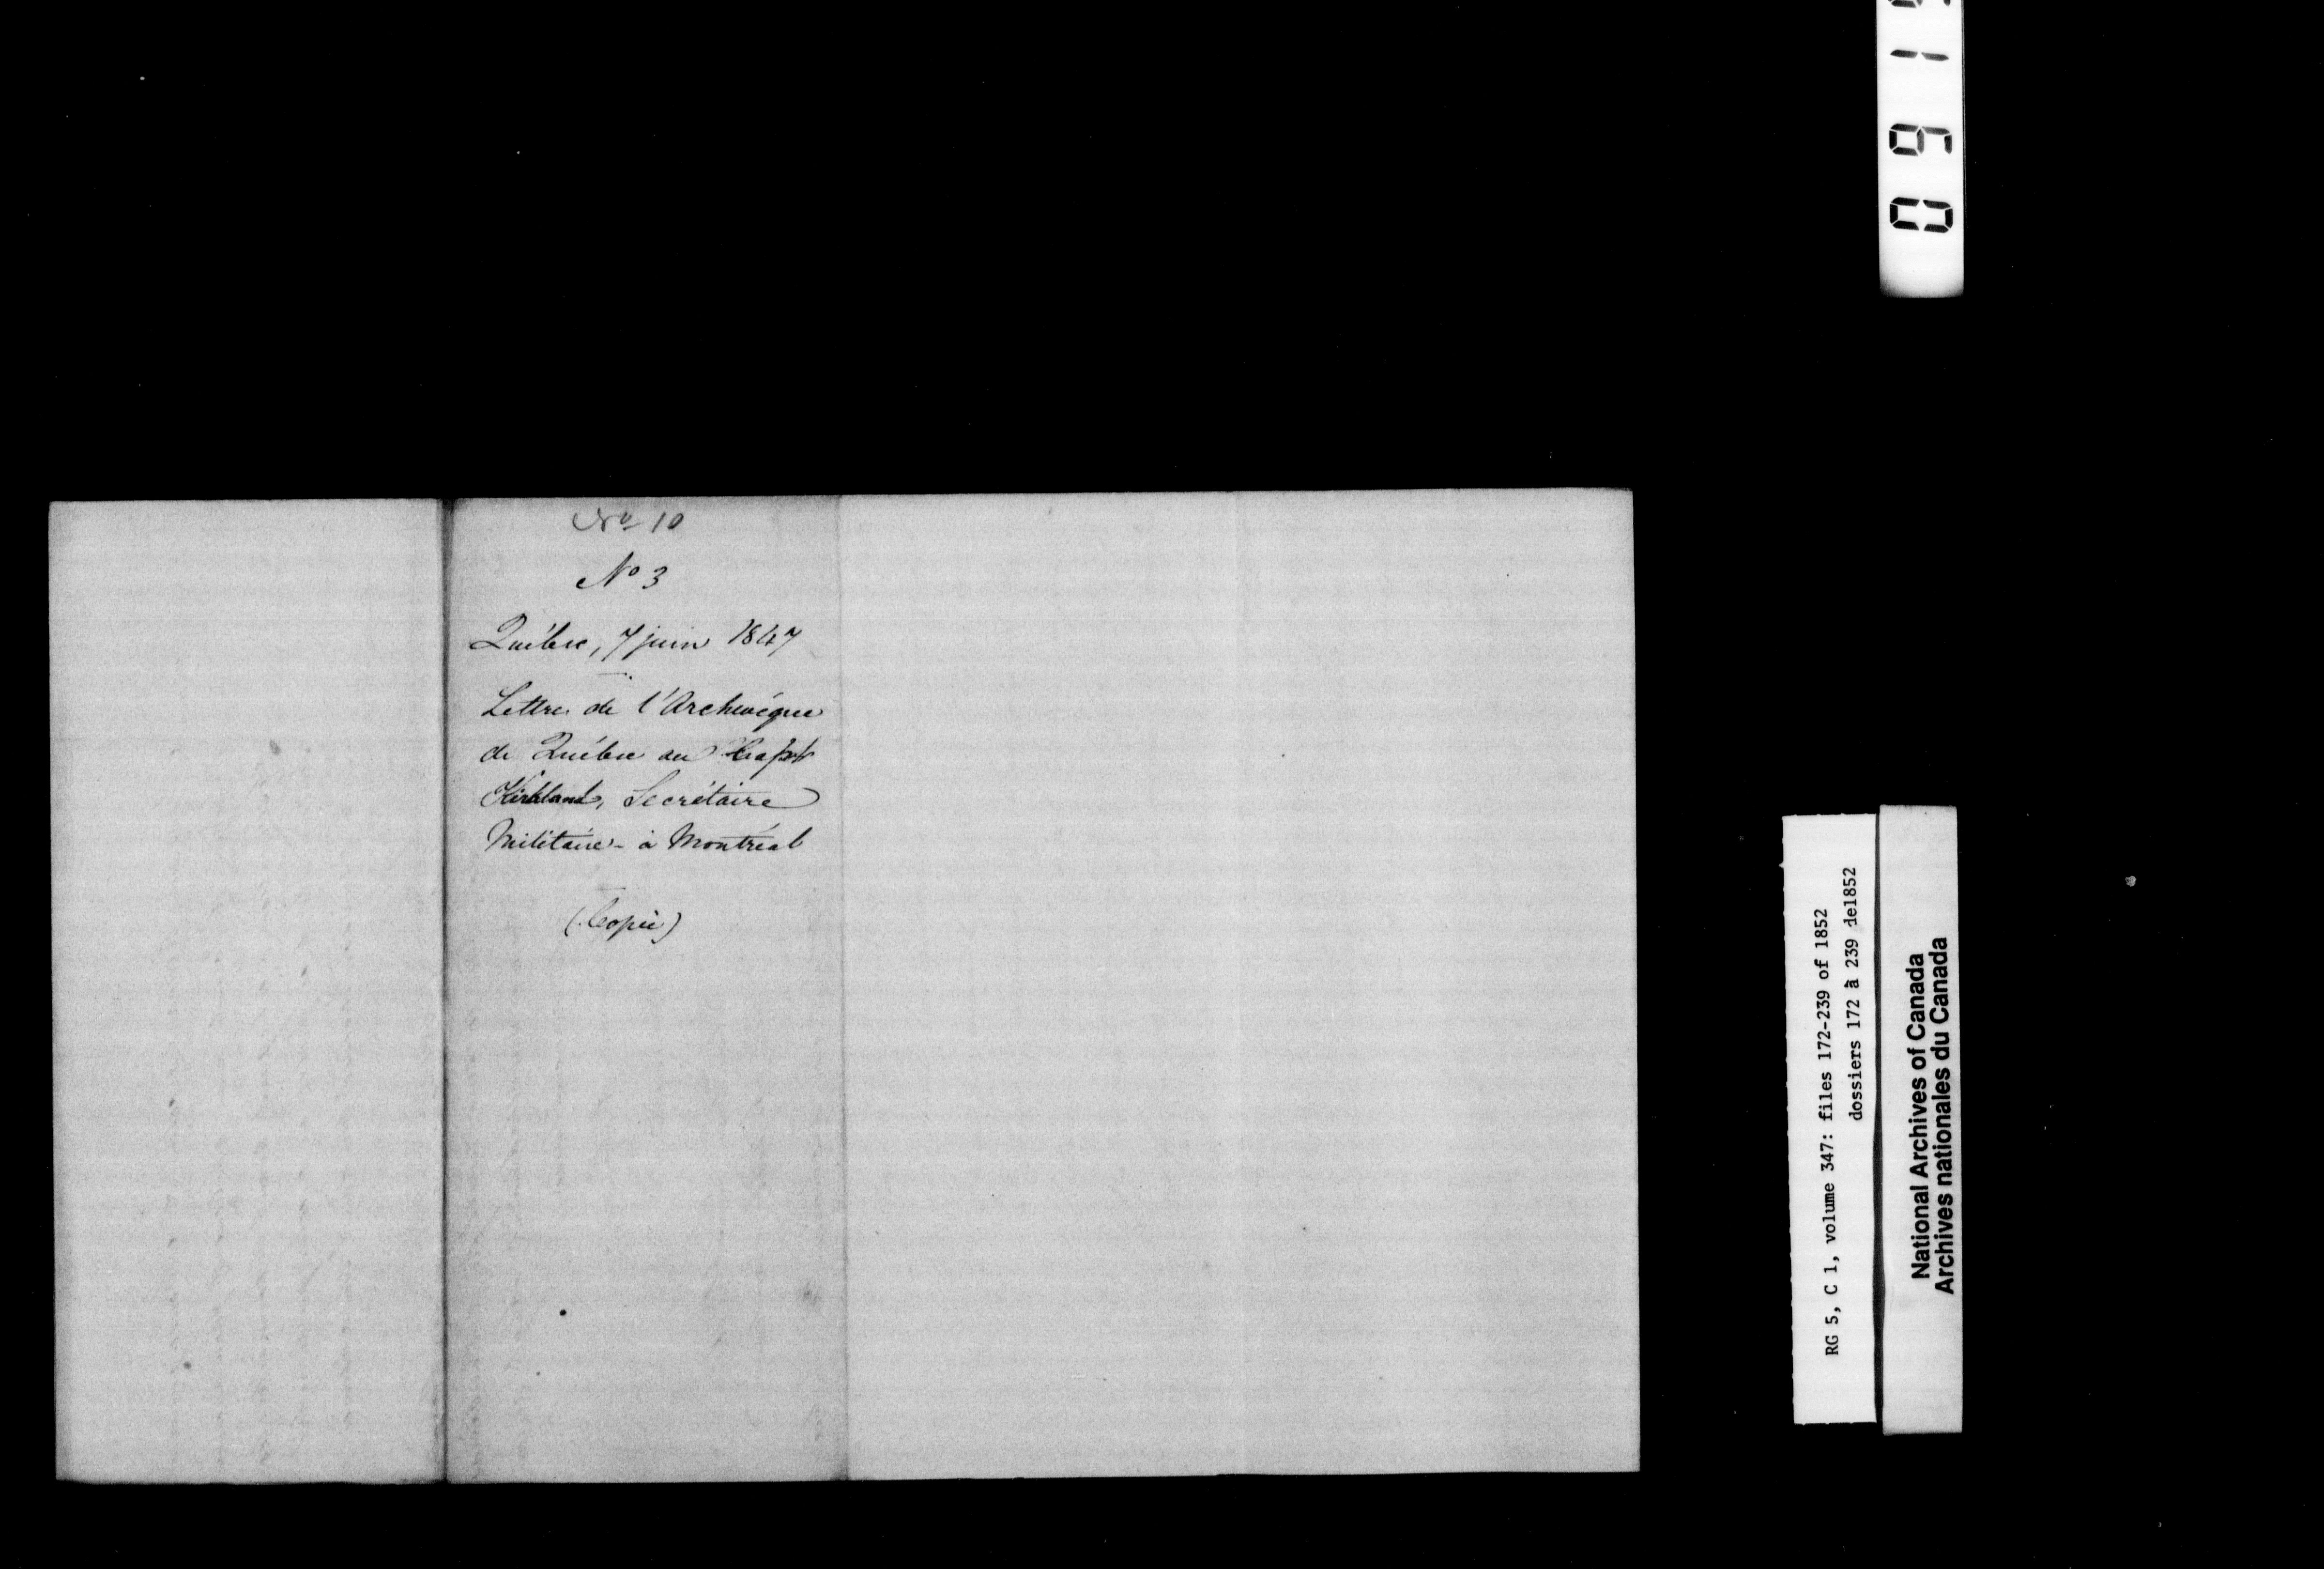 No 10
No 3
Québec, 7 juin 1847
Lettre de l'Archevêque
de Québec au Capt
Kirkland, Secrétaire
Militaire - à Montréal
(Copie)
RG 5, C 1, volume 347: files 172-239 of 1852
dossiers 172 à 239 de1852
National Archives of Canada
Archives nationales du Canada